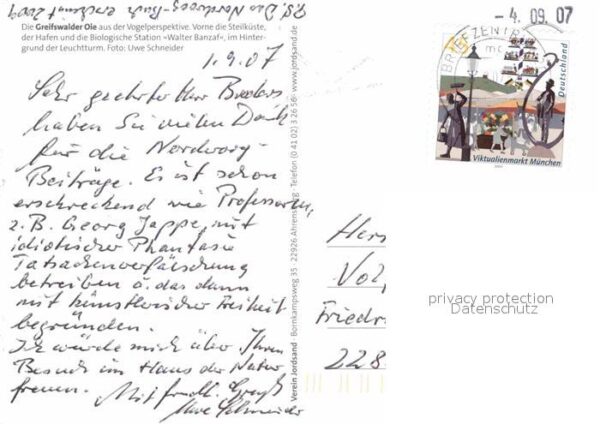 P.S. Das Nordwoog-Buch erscheint 2009
Die Greifswalder Oie aus der Vogelperspektive. Vorne die Steilküste,
der Hafen und die Biologische Station »Walter Banzaf«, im Hinter-
grund der Leuchtturm. Foto: Uwe Schneider
1.9.07
Sehr geehrter Herr
haben Sie vielen Dank
für die
Beiträge. Es ist schon
erschreckend wie Professoren,
z.B. Georg Jappe, mit
idiotischer Phantasie
Tatsachenverfälschung
betreiben u. das dann
mit künstlerischer Freiheit
begründen.
Ich würde mich über Ihren
Besuch im Haus der Natur
freuen. Mit frdl. Gruß
Uwe Schneider
Verein Jordsand · Bornkampsweg 35 · 22926 Ahrensburg · Telefon (0 41 02) 3 26 56 · www.jordsand.de
- 4. 09. 07
BRIEFZENTRUM
Deutschland
Viktualienmarkt München
Friedr
228
privacy protection
Datenschutz